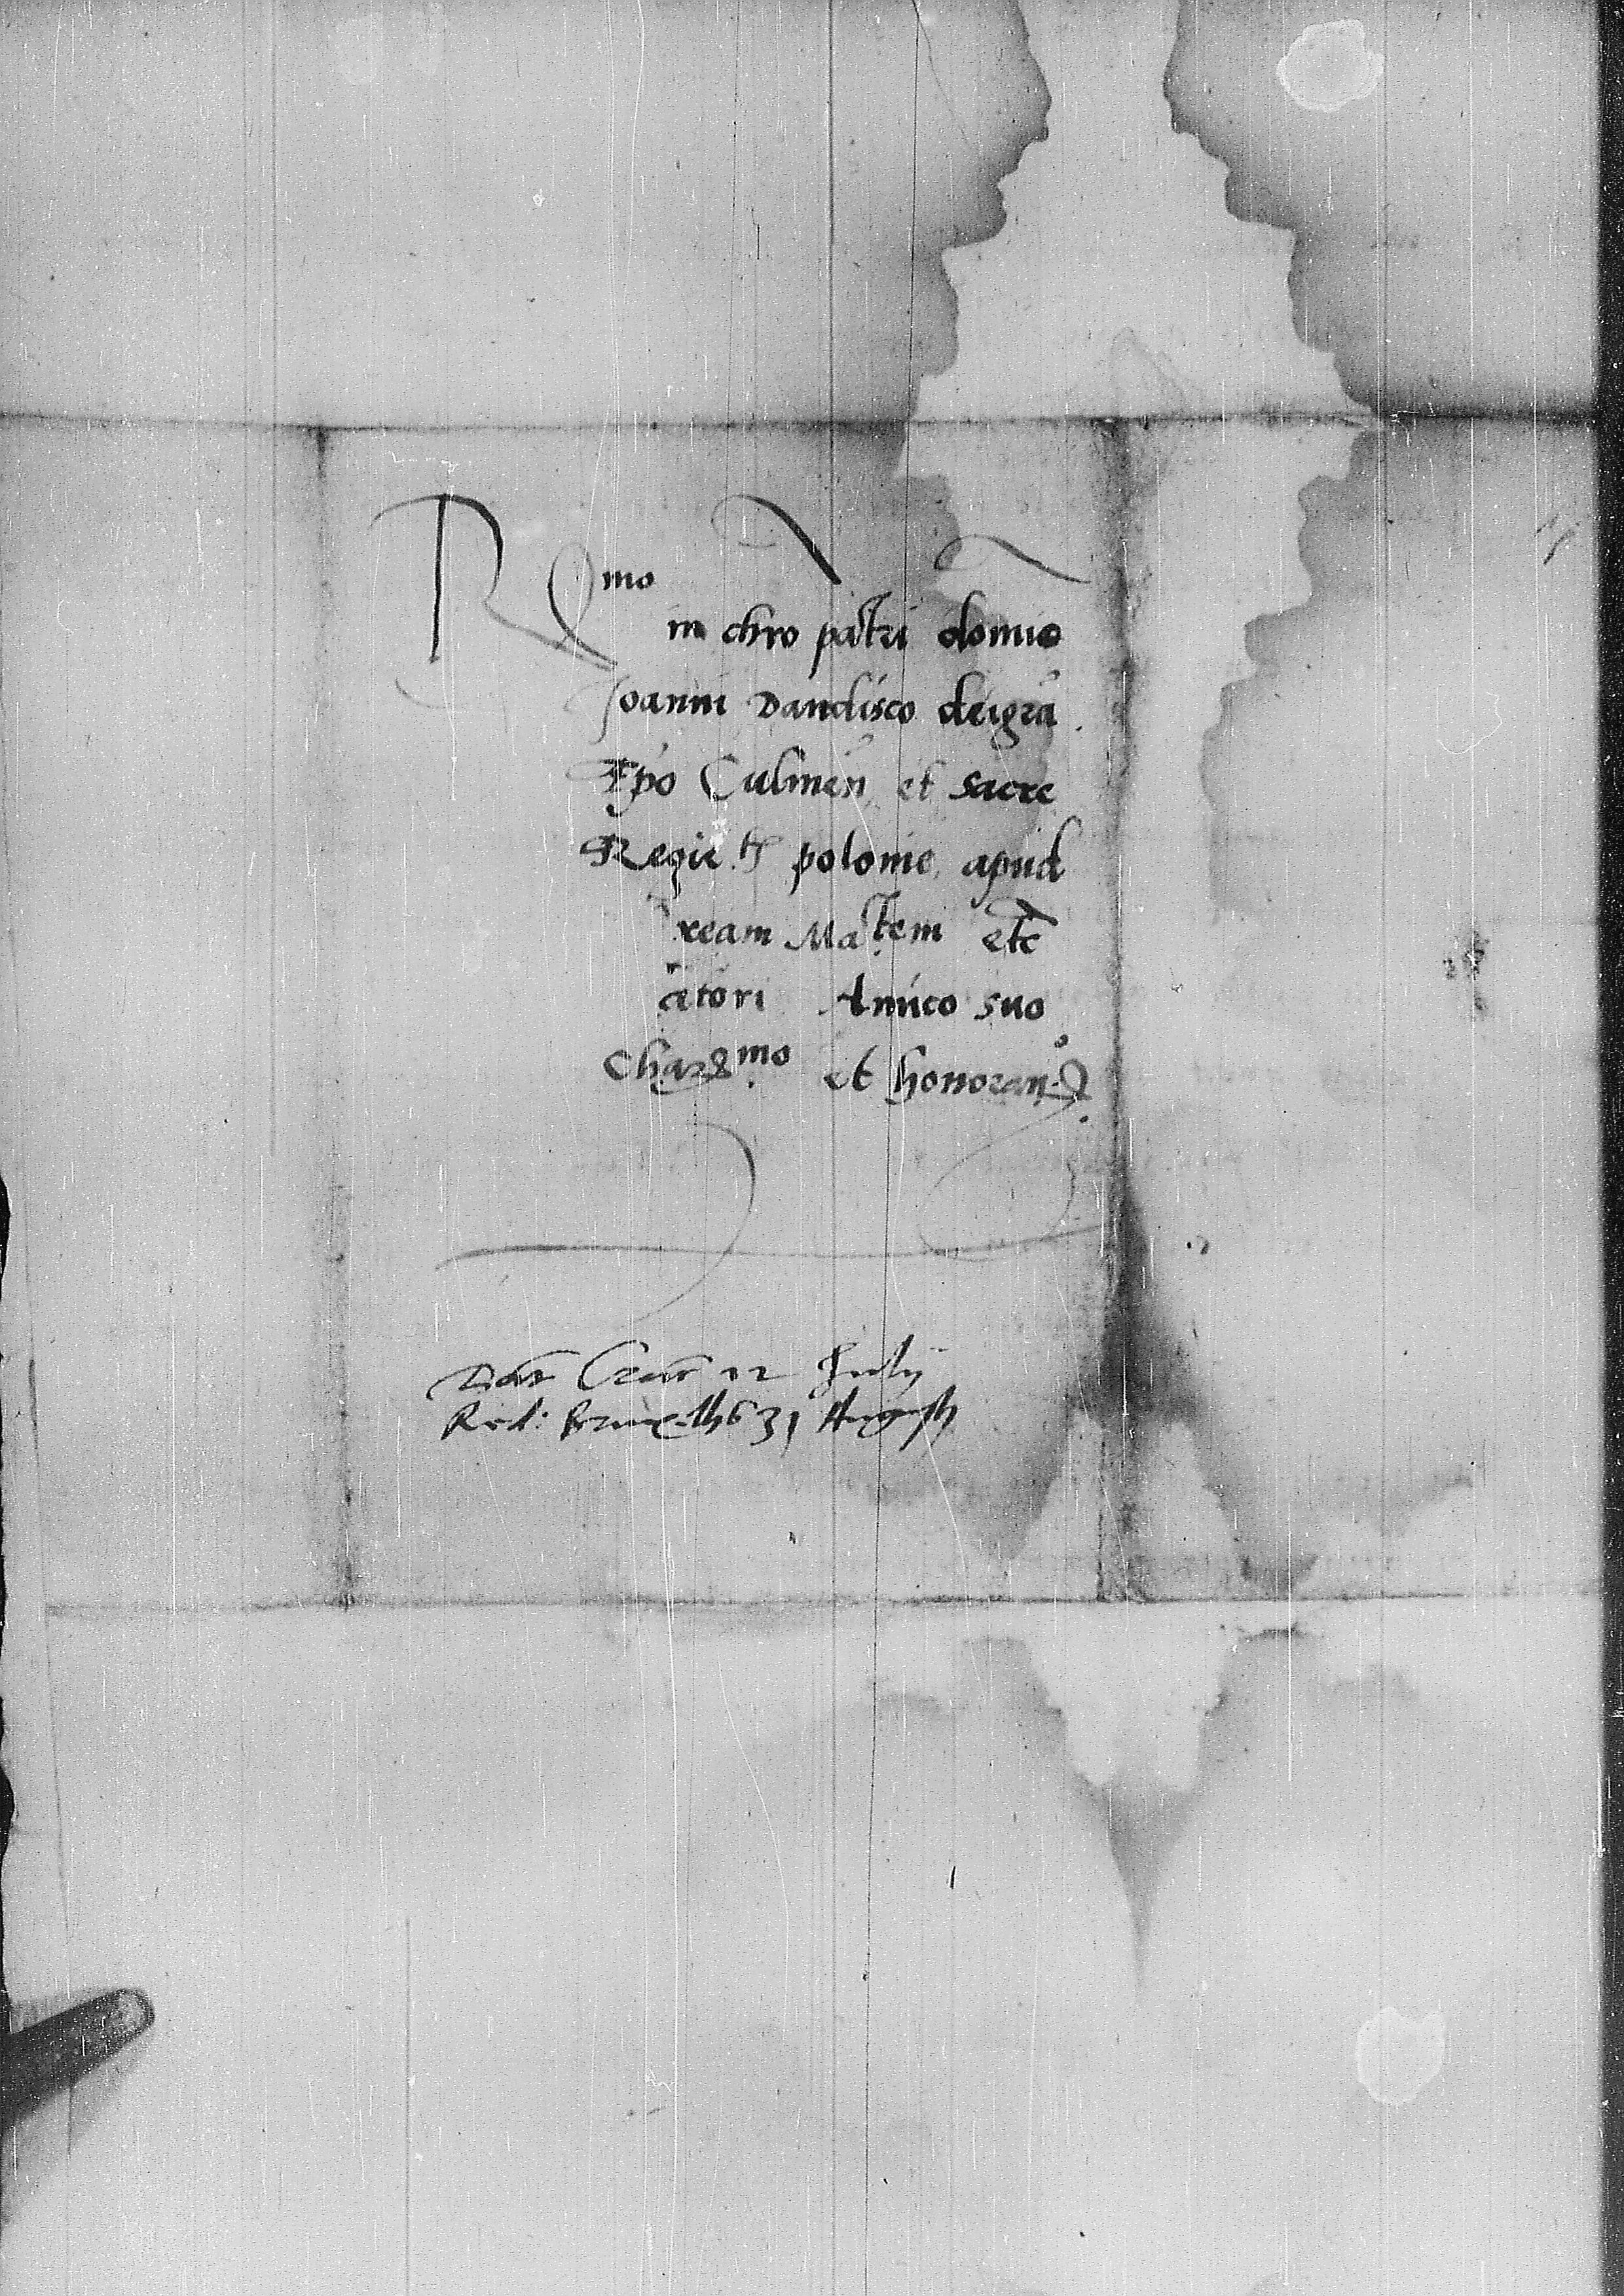 R mo
in chro patri domio
Joanni Dandisco dei gra
Epo Culmen et sacre
Regie polonie apud
ream Matem etc
atori Amico suo
Char mo et honoran
Dat 12 Julij
Red: Bruxellis 31 Augusti